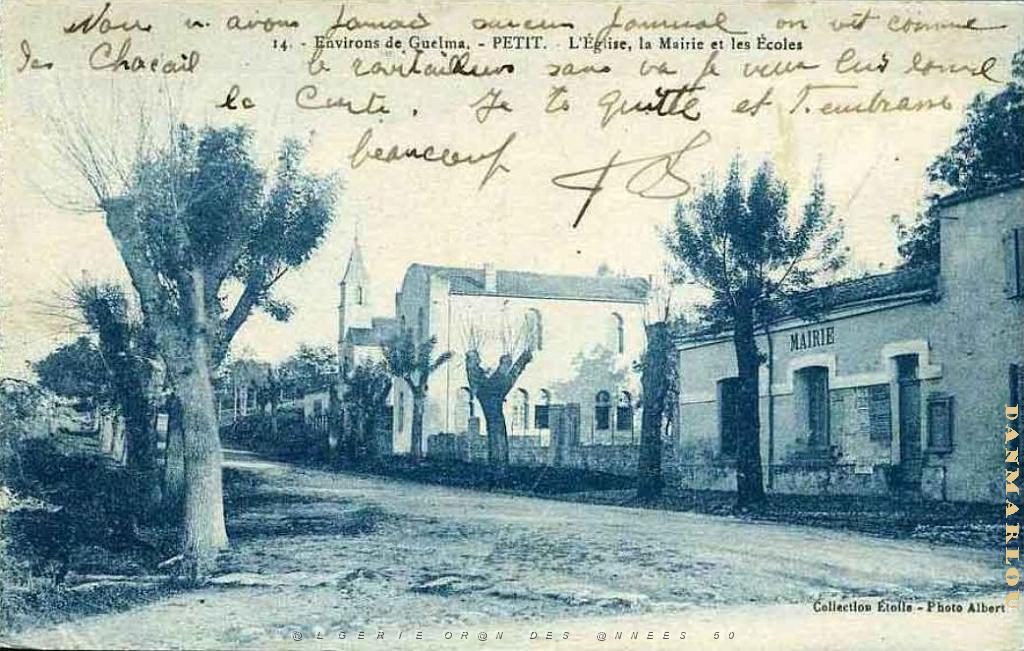 Nous n avons Jamais aucun Journal on vit comme
14. - Environs de Guelma. - PETIT. L'Église, la Mairie et les Écoles
des Chacail le ravitailleurs sans va Je veux
le Je te quitte et T'embrasse
beaucoup
MAIRIE
DANMARLOU
Collection Étoile - Photo Albert
@LGERIE OR@N DES @NNEES 50